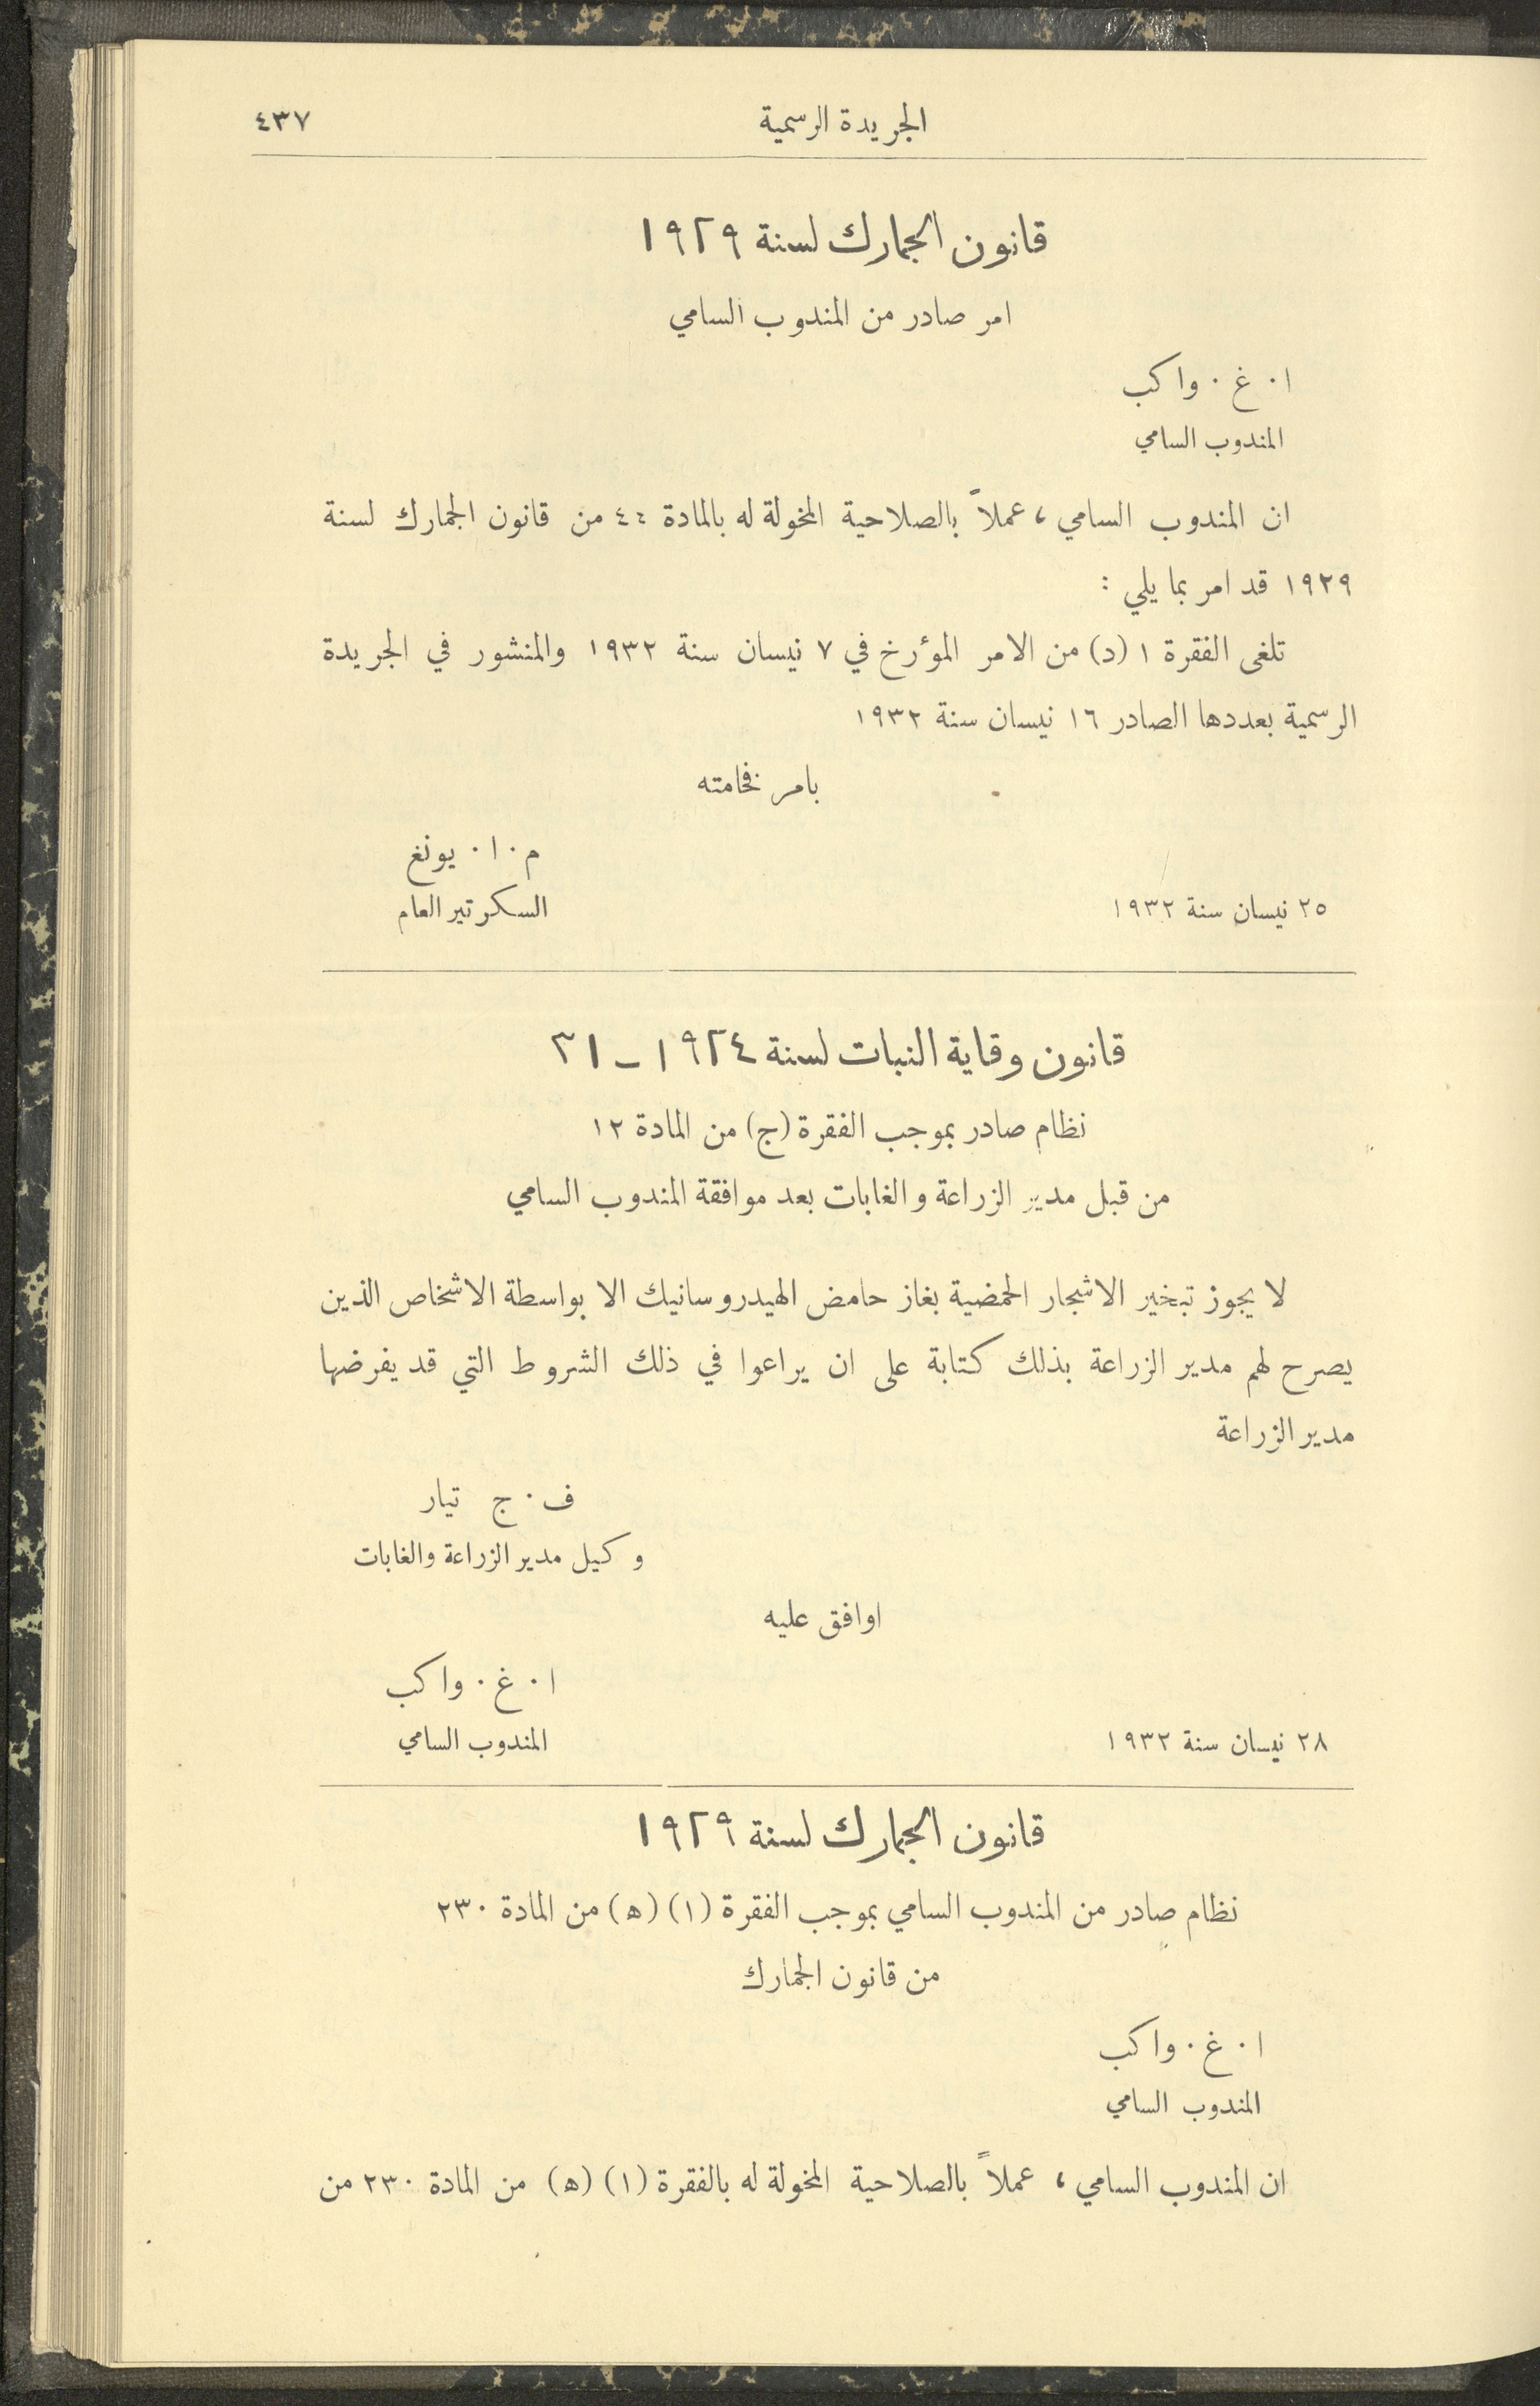 الجريدة الرسمية ٤٣٧
قانون الجمارك لسنة ١٩٢٩
امر صادر من المندوب السامي
ا. غ. واكب
المندوب السامي
ان المندوب السامي، عملاً بالصلاحية المخولة له بالمادة ٤٤ من قانون الجمارك لسنة
١٩٢٩ قد امر بما يلي :
تلغى الفقرة ١ (د) من الامر المؤرخ في ٧ نيسان سنة ١٩٣٢ والمنشور في الجريدة
الرسمية بعددها الصادر ١٦ نيسان سنة ١٩٣٢
بامر فخامته
م. ا. يونغ
٢٥ نيسان سنة ١٩٣٢ السكرتير العام
قانون وقاية النبات لسنة ١٩٢٤-٣١
نظام صادر بموجب الفقرة (ج) من المادة ١٢
من قبل مدير الزراعة والغابات بعد موافقة المندوب السامي
لا يجوز تبخير الاشجار الحمضية بغاز حامض الهيدروسانيك الا بواسطة الاشخاص الذين
يصرح لهم مدير الزراعة بذلك كتابة على ان يراعوا في ذلك الشروط التي قد يفرضها
مدير الزراعة
ف. ج تيار
وكيل مدير الزراعة والغابات
اوافق عليه
ا. غ. واكب
٢٨ نيسان سنة ١٩٣٢ المندوب السامي
قانون الجمارك لسنة ١٩٢٩
نظام صادر من المندوب السامي بموجب الفقرة (١) (ه) من المادة ٢٣٠
من قانون الجمارك
ا. غ. واكب
المندوب السامي
ان المندوب السامي، عملاً بالصلاحية المخولة له بالفقرة (١) (ه) من المادة ٢٣٠ من